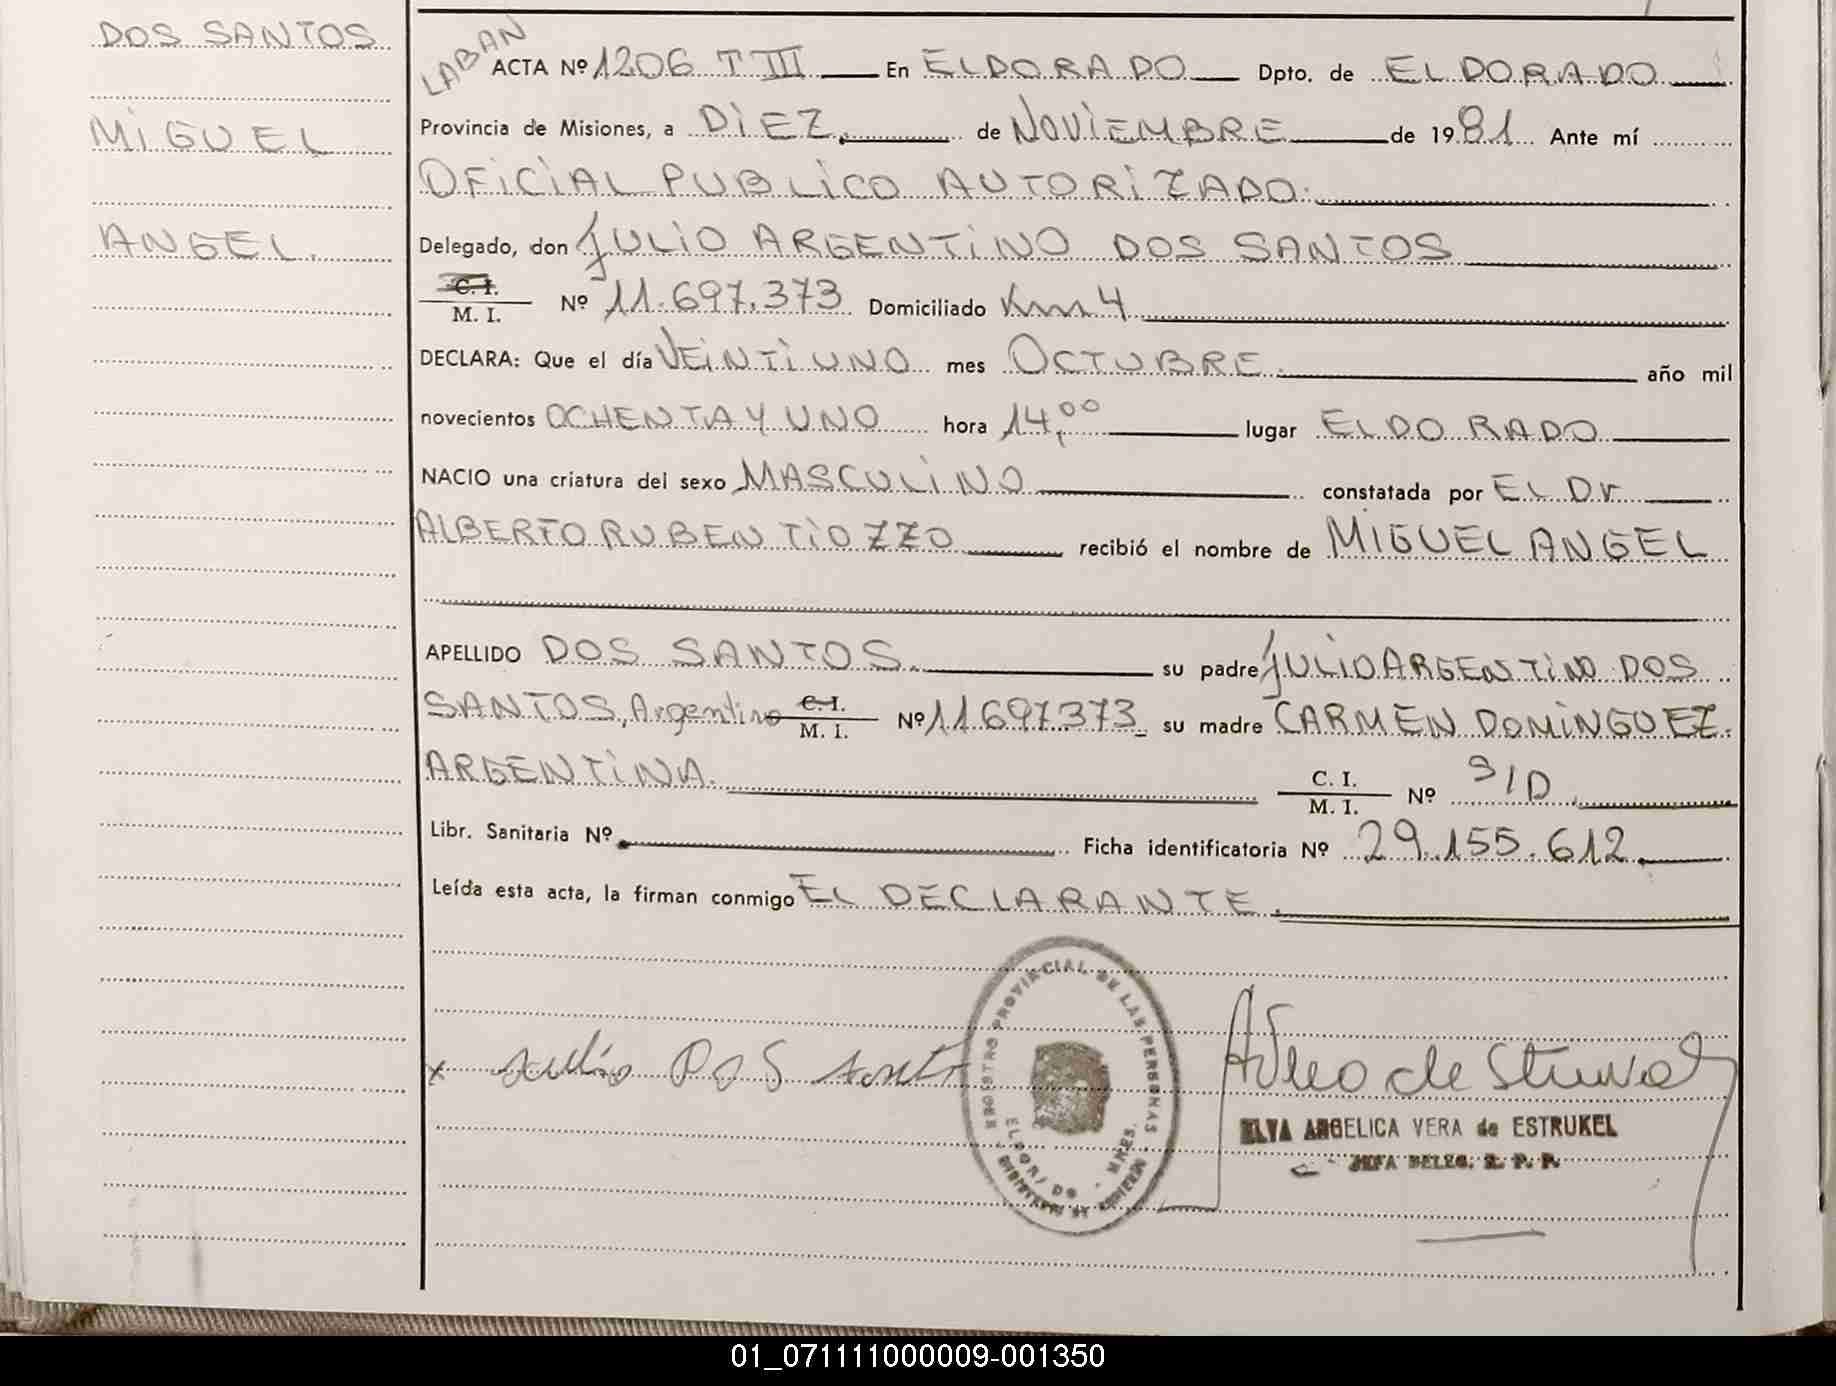 DOS SANTOS
MIGUEL
ANGEL.
LABAN
ACTA Nº 1206 T III En ELDORADO Dpto. de ELDORADO
Provincia de Misiones, a DIEZ de NOVIEMBRE de 1981 Ante mí
OFICIAL PUBLICO AUTORIZADO.
Delegado, don JULIO ARGENTINO DOS SANTOS
C. I.
M. I. Nº 11.697.373 Domiciliado Km 4
DECLARA: Que el día VEINTIUNO mes OCTUBRE. año mil
novecientos OCHENTA Y UNO hora 14,00 lugar ELDORADO
NACIO una criatura del sexo MASCULINO constatada por EL Dr
ALBERTO RUBEN TIOZZO recibió el nombre de MIGUEL ANGEL
APELLIDO DOS SANTOS. su padre JULIO ARGENTINO DOS
SANTOS, Argentino C. I. M. I. Nº 11697.373 su madre CARMEN DOMINGUEZ.
ARGENTINA. C. I. M. I. Nº S/D
Libr. Sanitaria Nº Ficha identificatoria Nº 29.155.612
Leída esta acta, la firman conmigo EL DECLARANTE.
x Julio DOS
REGISTRO PROVINCIAL DE LAS PERSONAS
ELDORADO - MNES.
MINISTERIO DE GOBIERNO
ELVA ANGELICA VERA de ESTRUKEL
JEFA DELEG. R. P. P.
01_071111000009-001350